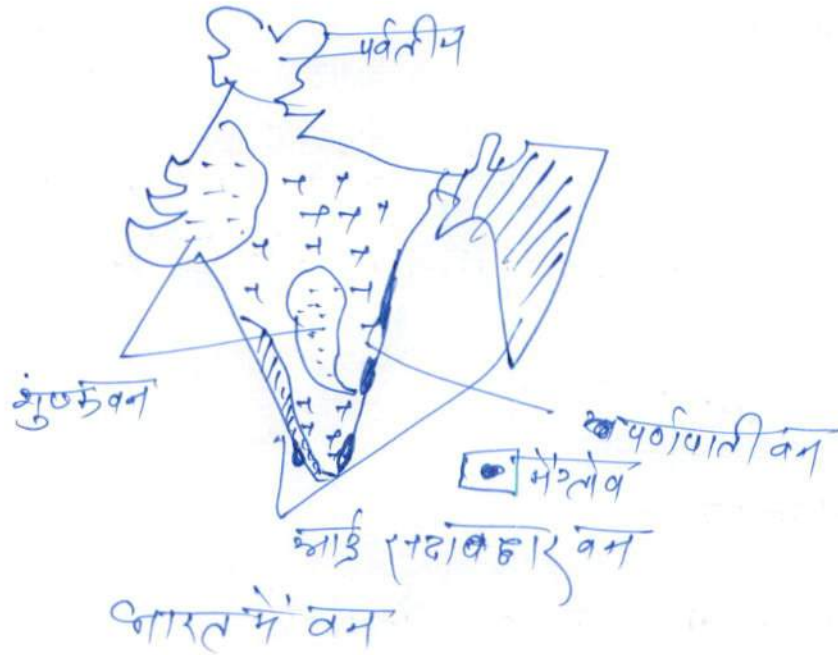 पर्वतीय
शुष्कवन
पर्णपाती वन
मैंग्रोव
आर्द्र सदाबहार वन
भारत में वन